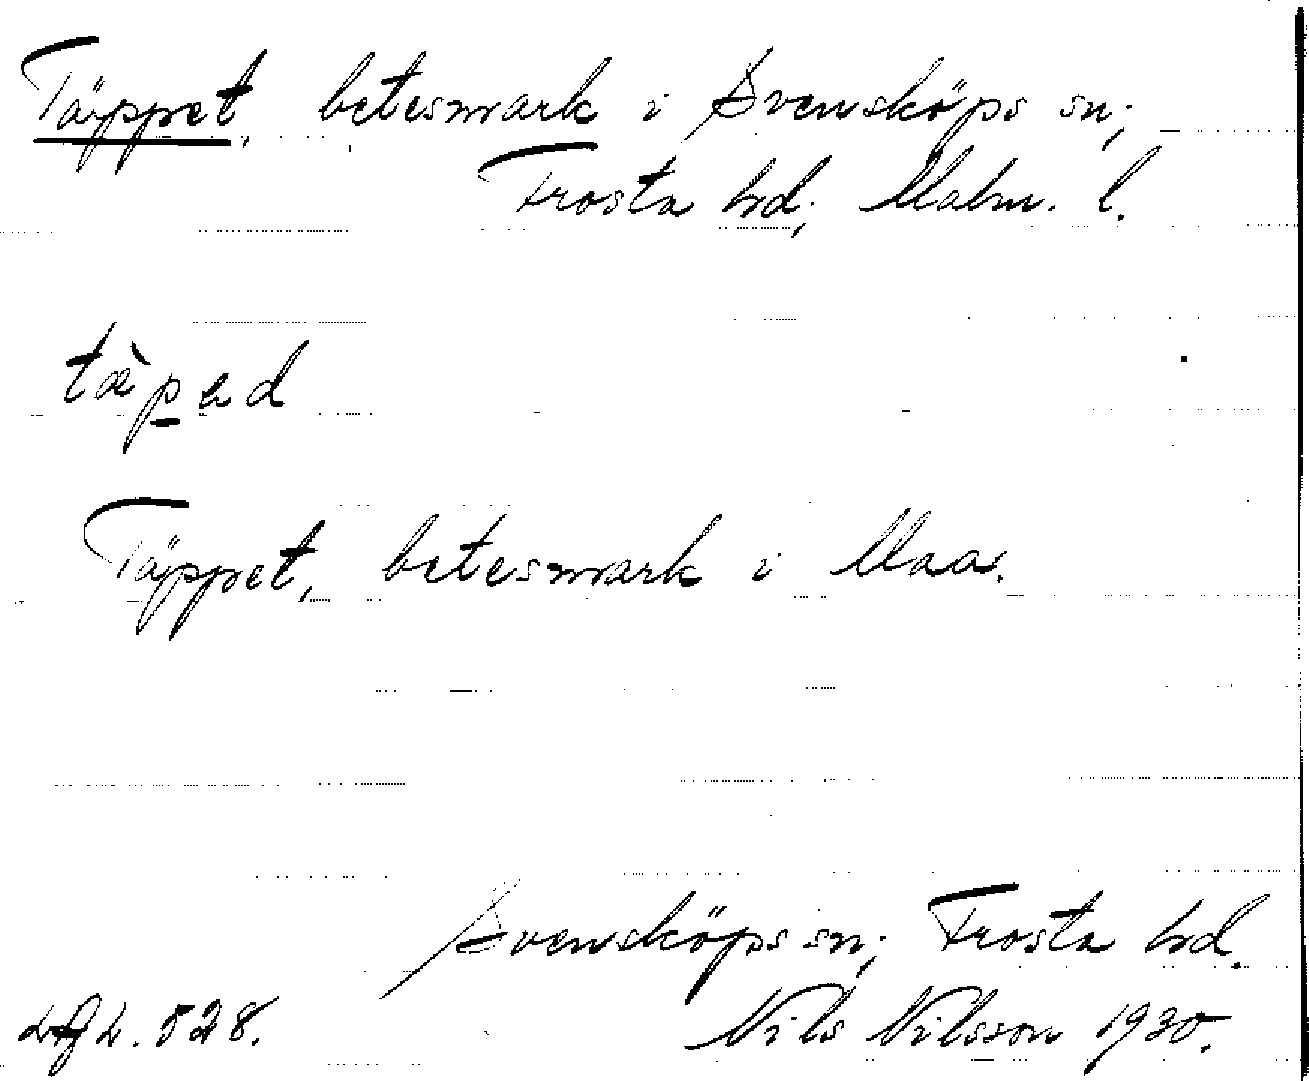 Täppet, betesmark i Svensköps sn,
Frosta hd, Malm. l.
tæ̀pad
Täppet, betesmark i Maa.
Svensköps sn, Frosta hd.
528.
Nils Nilsson 1930.